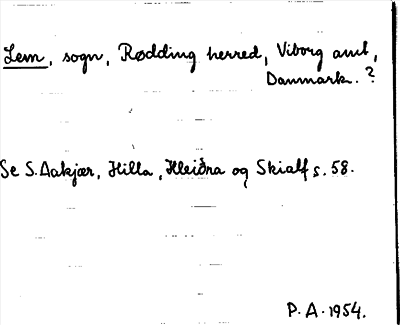 Lem, sogn, Rødding herred, Viborg amt,
Danmark. ?
Se S. Aakjær, Hilla, Hleiðra og Skialf s. 58.
P. A. 1954.